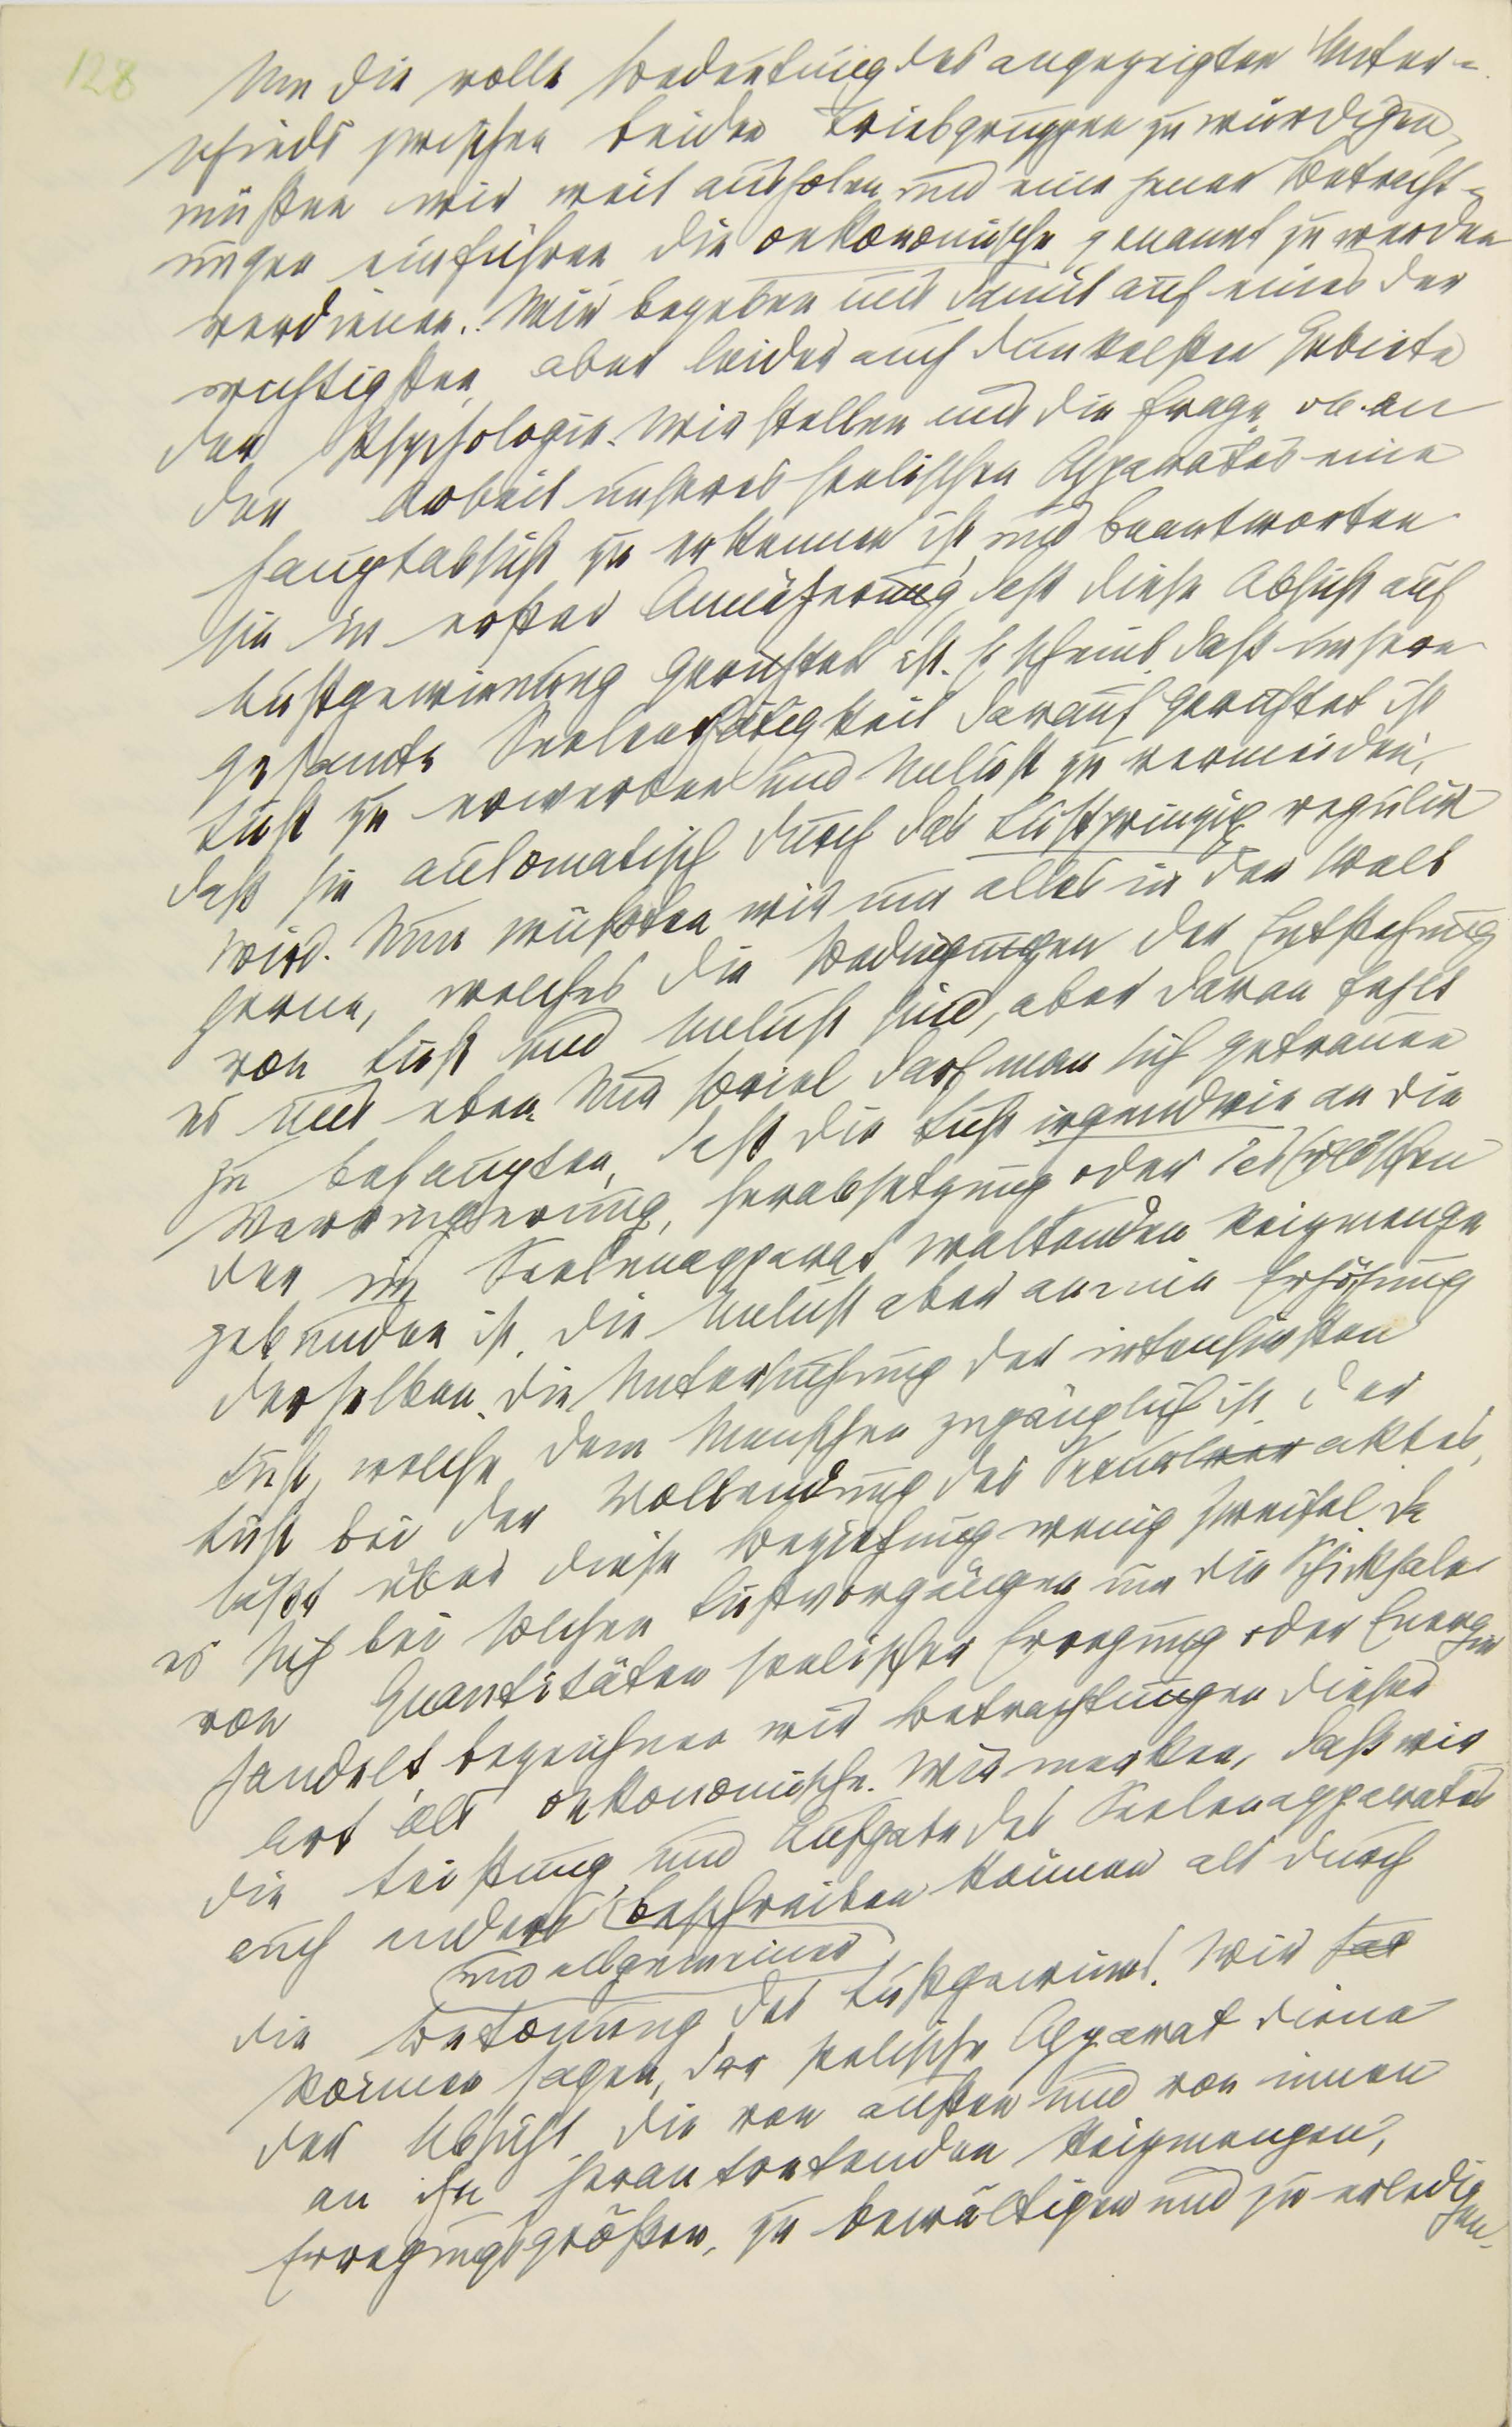 128
Um die volle Bedeutung des angezeigten Unter-
schieds zwischen beiden Triebgruppen zu würdigen,
müßten wir weit ausholen und eine jener Betracht-
ungen einführen die oekonomische genannt zu werden
verdienen. Wir begeben uns damit auf eines der
wichtigsten, aber leider auch dunkelsten Gebiete
der Psychologie. Wir stellen uns die Frage, ob an
der Arbeit unseres seelischen Apparates eine
Hauptabsicht zu erkennen ist, und beantworten
sie in erster Annäherung, daß diese Absicht auf
Lustgewinnung gerichtet ist. Es scheint, daß unsere
gesamte Seelentätigkeit darauf gerichtet ist
Lust zu erwerben und Unlust zu vermeiden,
daß sie automatisch durch das Lustprinzip regulirt
wird. Nun wüßten wir um alles in der Welt
gerne, welches die Bedingungen der Entstehung
von Lust und Unlust sind, aber daran fehlt
es uns eben. Nur soviel darf man sich getrauen
zu behaupten, daß die Lust irgendwie an die
Verringerung, Herabsetzung oder das Erlöschen
der im Seelenapparat waltenden Reizmenge
gebunden ist, die Unlust aber an eine Erhöhung
derselben. Die Untersuchung der intensivsten
Lust, welche dem Menschen zugänglich ist, der
Lust bei der Vollendung des Sexualaktes,
läßt über diese Beziehung wenig Zweifel. Da
es sich bei solchen Lustvorgängen um die Schicksale
von Quantitäten seelischer Erregung oder Energie
handelt, bezeichnen wir Betrachtungen dieser
Art als oekonomische. Wir merken, daß wir
die Leistung und Aufgabe des Seelenapparates
auch anders beschreiben können als durch
und allgemeiner
die Betonung des Lustgewinns. Wir
können sagen, der seelische Apparat diene
der Absicht, die von außen und von innen
an ihn herantretenden Reizmengen,
Erregungsgrößen, zu bewältigen und zu erledigen.